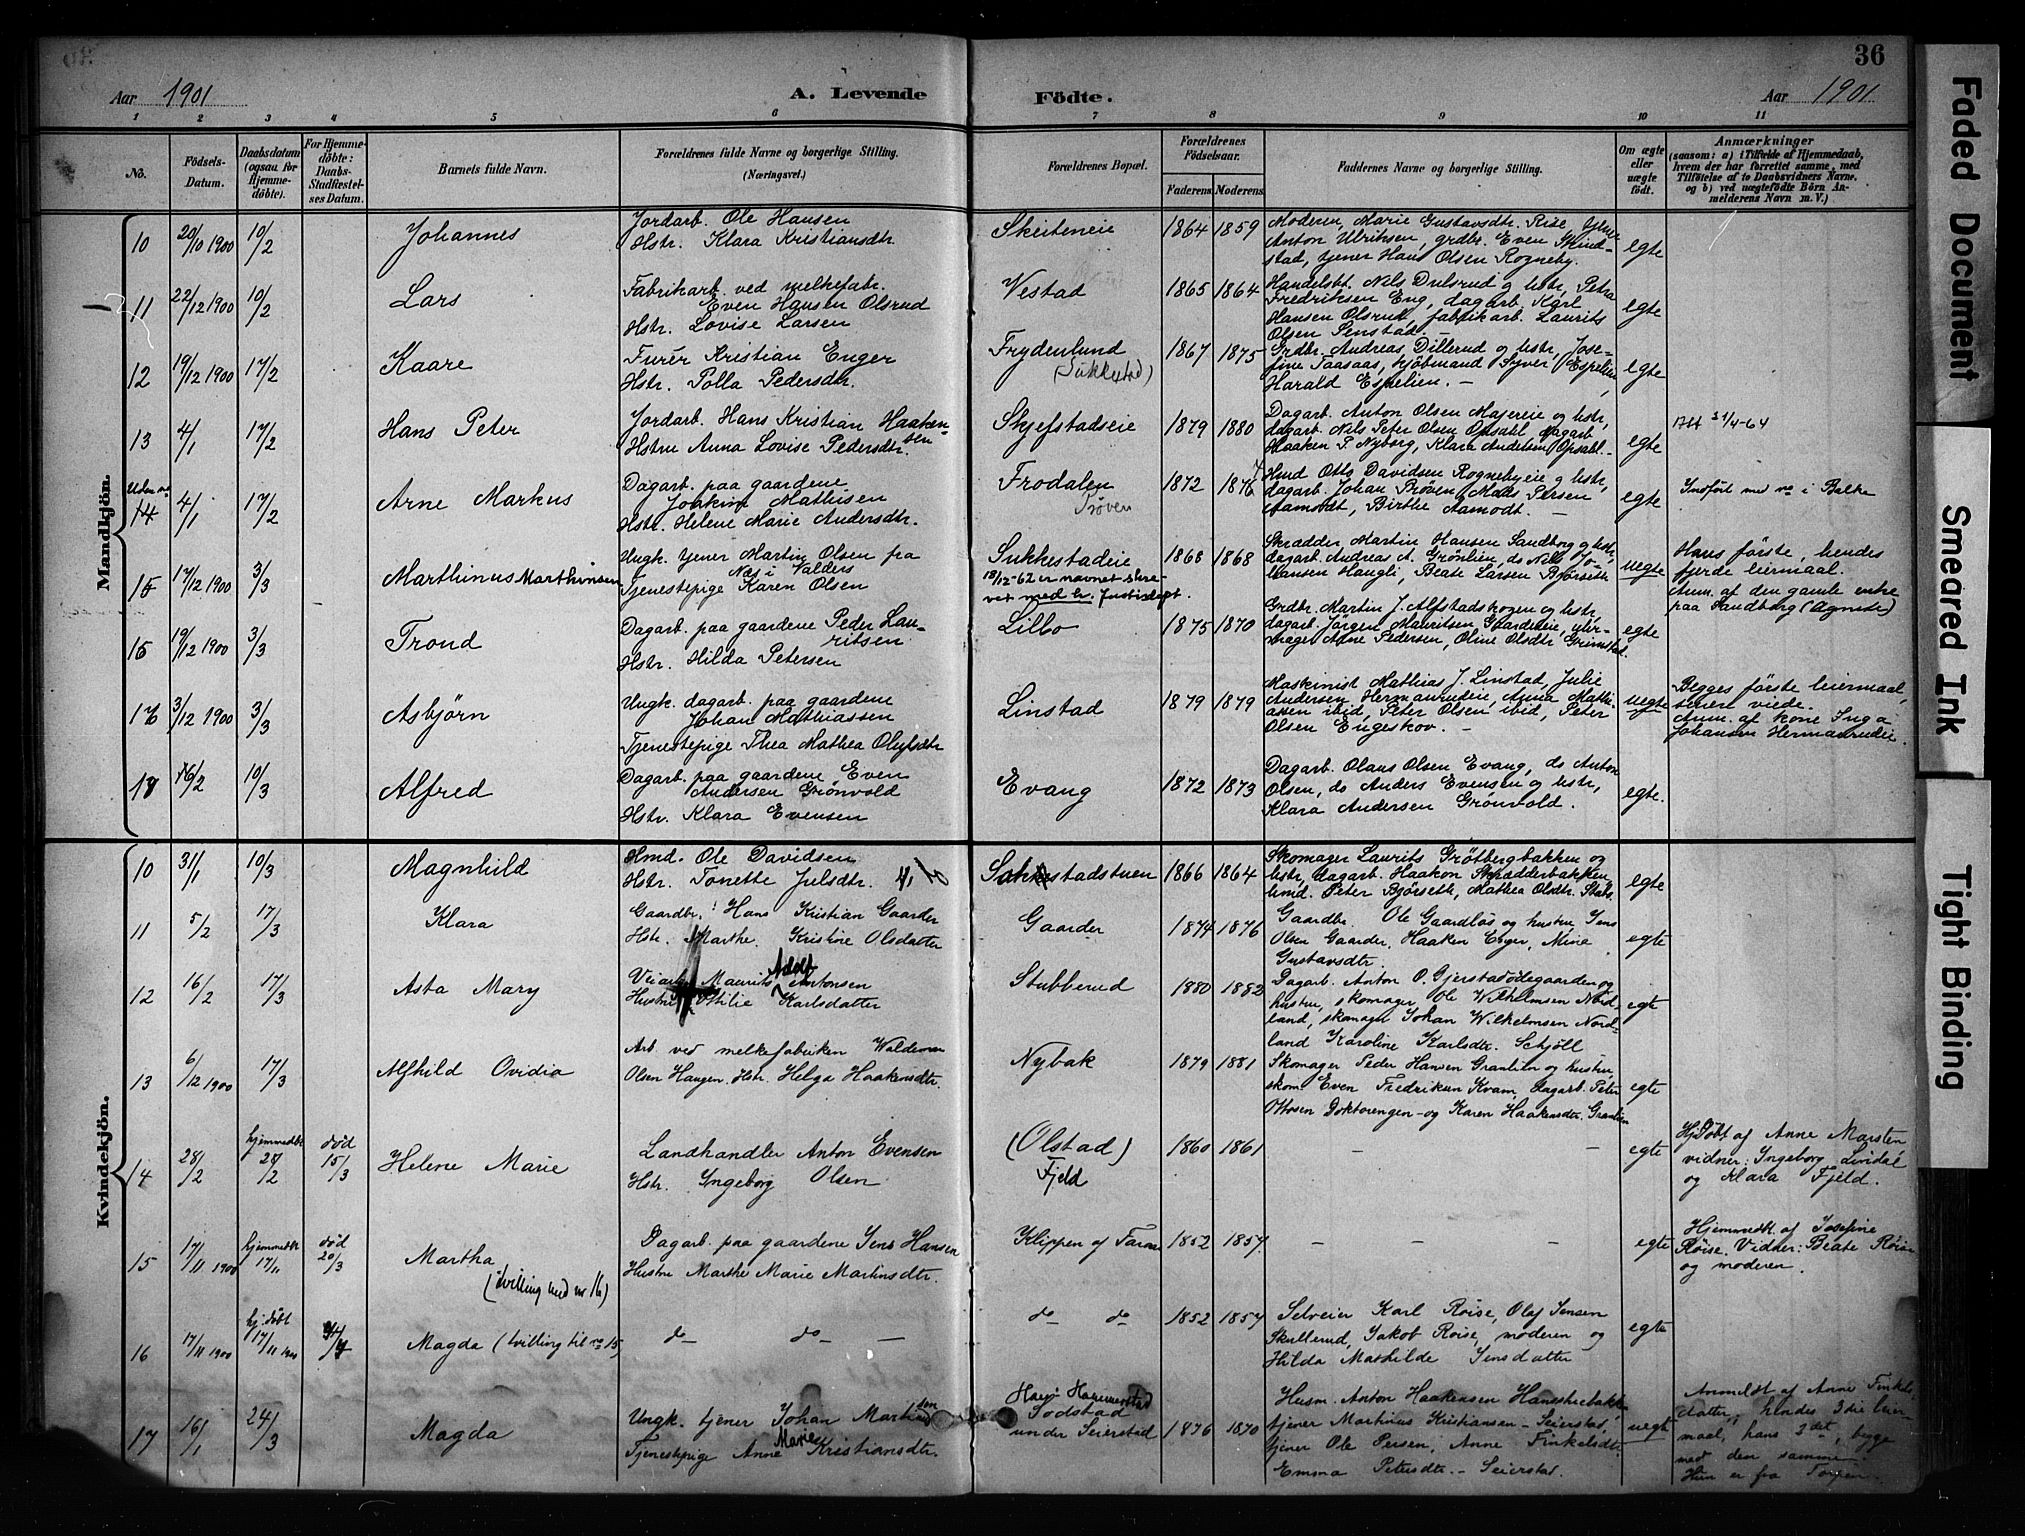 36
Aar 1901
A. Levende Födte.
Aar 1901
1 2 3 4 5 6 7 8 9 10 11
No.
Födsels-Datum.
Daabsdatum (ogsaa for Hjemme-döbte).
For Hjemme-döbte: Daabs-Stadfæstel-ses Datum.
Barnets fulde Navn.
Forældrenes fulde Navne og borgerlige Stilling.
(Næringsvei.)
Forældrenes Bopæl.
Forældrenes Födselsaar.
Faderens Moderens
Faddernes Navne og borgerlige Stilling.
Om ægte eller uægte födt.
Anmærkninger
(saasom: a) i Tilfælde af Hjemmedaab,
hvem der har forrettet samme, med
Tilföielse af to Daabsvidners Navne,
og b) ved uægtefödte Börn An-
melderens Navn m. V.)
Mandkjön.
10 20/10 1900 10/2 Johannes
Jordarb. Ole Hansen
Hstr. Klara Kristiansdtr.
Skeiteneie 1864 1859
Moderen, Marie Gustavsdtr. Rise,
Anton Ulriksen, grdbr. Even
stad, tjener Hans Olsen Rogneby.
egte
11 22/12 1900 10/2 Lars
Fabrikarb. ved melkefabr.
Even Hansen Olsrud
Hstr. Lovise Larsen
Vestad 1865 1864
Handelsbt. Nils Dulsrud og hstr, Petra
Fredriksen Eng, dagarb. Karl
Hansen Olsrud, fabrikarb. Laurits
Olsen Senstad.
egte
12 19/12 1900 17/2 Kaare
Furér Kristian Enger
Hstr. Polla Pedersdtr.
Frydenlund
(Sukkestad)
1867 1875
Grdbr. Andreas Dillerud og hstr, Jose-
fine Taasaas, kjöbmand Syver Espelien,
Harald Espelien. —
egte
13 4/1 17/2 Hans Peter
Jordarb. Hans Kristian Haaken-
sen
Hstru Anna Lovise Pedersdtr.
Skjefstadeie 1879 1880
Dagarb. Anton Olsen Majereie og hstr,
dagarb. Nils Peter Olsen Opsahl, dagarb
Haaken P. Nyborg, Klara Andersen Opsahl.
egte
21/4-64
Uden no
14 4/1 17/2 Arne Markus
Dagarb. paa gaardene
Joakim Mathisen
Hstr. Helene Marie Andersdtr.
Frodalen
Pröven
1872 1876
Hmd Otto Davidsen Rognebyeie og hstr,
dagarb. Johan Pröven, Mads Persen
Aamodt, Birthe Aamodt. —
egte
Indfört med no i Balke
15 17/12 1900 3/3 Marthinus Marthinsen
Ungk. tjener Martin Olsen fra
Næs i Valders
Tjenestepige Karen Olsen
Sukkestadeie
18/12-62 er navnet skre-
vet med h. Justisdept.
1868 1868
Skrædder Martin Hansen Sandborg og hstr,
dagarb. Andreas A. Grönlien, do Nils Jo-
hansen Haugli, Beate Larsen Bjørseth
uegte
Hans förste, hendes
fjerde leiermaal.
Anm. af den gamle enke
paa Sandborg (Agnete)
16 19/12 1900 3/3 Trond
Dagarb. paa gaardene Peder Lau-
ritsen
Hstr. Hilda Petersen
Lillo 1875 1870
Grdbr. Martin J. Alfstadskogen og hstr,
dagarb. Jörgen Mauritsen Gaardereie, uhr-
mager Arne Pedersen, Oline Olsdtr Grimstad.
egte
17 3/12 1900 3/3 Asbjörn
Ungk. dagarb. paa gaardene
Johan Mathiassen
Tjenestepige Thea Mathea Olufsdtr
Linstad 1879 1879
Maskinist Mathias J. Linstad, Julie
Andersen Hermanrudeie, Anna Mathi-
assen ibid, Peter Olsen ibid, Peter
Olsen Engeskov. —
uegte
Begges förste leiermaal,
senere viede.
Anm. af kone Inga
Johansen Hermanrudeie.
18 16/2 10/3 Alfred
Dagarb. paa gaardene Even
Andersen Grönvold
Hstr. Klara Evensen
Evang 1872 1873
Dagarb. Olaus Olsen Evang, do Anton
Olsen, do Anders Evensen og hstr,
Klara Andersen Grönvold.
egte.
Kvindekjön.
10 31/1 10/3 Magnhild
Hmd. Ole Davidsen
Hstr. Tonette Julsdtr.
1866 1864
Skomager Laurits Grötbergbakken og
hstr, dagarb. Haakon Skrædderbakken,
hmd. Peter Bjørseth, Mathea Olsdtr.
egte
11 5/2 17/3 Klara
Gaardbr. Hans Kristian Gaarder
Hstr. Marthe Kristine Olsdatter
Gaarder 1874 1876
Gaardbr. Ole Gaardlös og hustru, Jens
Olsen Gaarder, Haaken Enger, Mina
Gustavsdtr.
egte
12 16/2 17/3 Asta Mary
Veiarb. Maurits Adolf Antonsen
Hustru Othilie Karlsdatter
Stubberud 1880 1882
Dagarb. Anton O. Gjerstadödegaarden og
hustru, skomager Ole Wilhelmsen Nord-
land, skomager Johan Wilhelmsen Nord-
land Karoline Karlsdtr. Schjöll
egte
13 6/12 1900 17/3 Alfhild Ovidia
Arb. ved melkefabriken Waldemar
Olsen Haugen. Hstr. Helga Haakensdtr.
Nybak 1879 1881
Skomager Peder Hansen Granlien og hustru,
skom Even Fredriksen Kvam, dagarb. Peter
Ottosen Doktorengen og Karen Haakensdtr. Granlien
egte
14 28/2 hjemmedbt 28/2 död 15/3 Helene Marie
Landhandler Anton Evensen
Hstr. Ingeborg Olsen
(Olstad)
Fjeld
1860 1861 — — — egte
Hj.döbt af Anne Marsten
vidner: Ingeborg Lindal
og Klara Fjeld.
15 17/11 1900 hjemmedbt 17/11 död 20/3 Martha
(tvilling med nr 16)
Dagarb. paa gaardene Jens Hansen
Hustru Marthe Marie Martinsdtr.
Klippen 1852 1857 — — — egte
Hjemmedbt af Josefine
Röise. Vidner: Beate Röise
og moderen.
16 17/11 1900 hj.döbt 17/11 1900 Magda (tvilling til no 15)
do — do — —
do do 1852 1857
Selveier Karl Röise, Olaf Jensen
Skullerud, Jakob Röise, moderen og
Hilda Mathilde Jensdatter
egte
17 16/1 24/3 Magda
Ungk. tjener Johan Martinsen
Tjenestepige Anne Marie Kristiansdtr.
Sodstad
under Seierstad
1876 1870
Husm. Anton Haakensen
tjener Martinus Kristiansen Seierstad,
tjener Ole Persen, Anne Finkelsdtr
Emma Petersdtr. Seierstad.
uegte
Anmeldt af Anne Finkels-
datter, hendes 3die leier-
maal, hans 2det, begge
med den samme.
Hun er fra Torpen.
Faded Document
Smeared Ink
Tight Binding